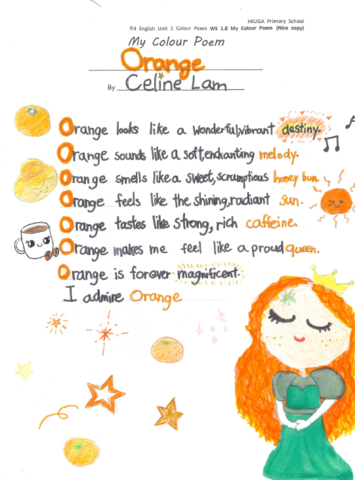 HKUGA Primary School
P.4 English Unit 1 Colour Poem WS 1.8 My Colour Poem (Nice copy)
My Colour Poem
Orange
By Celine Lam
Orange looks like a wonderful,vibrant destiny.
Orange sounds like a soft,enchanting melody.
Orange smells like a sweet,scrumptious honey bun.
Orange feels like the shining,radiant sun.
Orange tastes like strong, rich caffeine.
Orange makes me feel like a proud queen.
Orange is forever magnificent.
I admire Orange